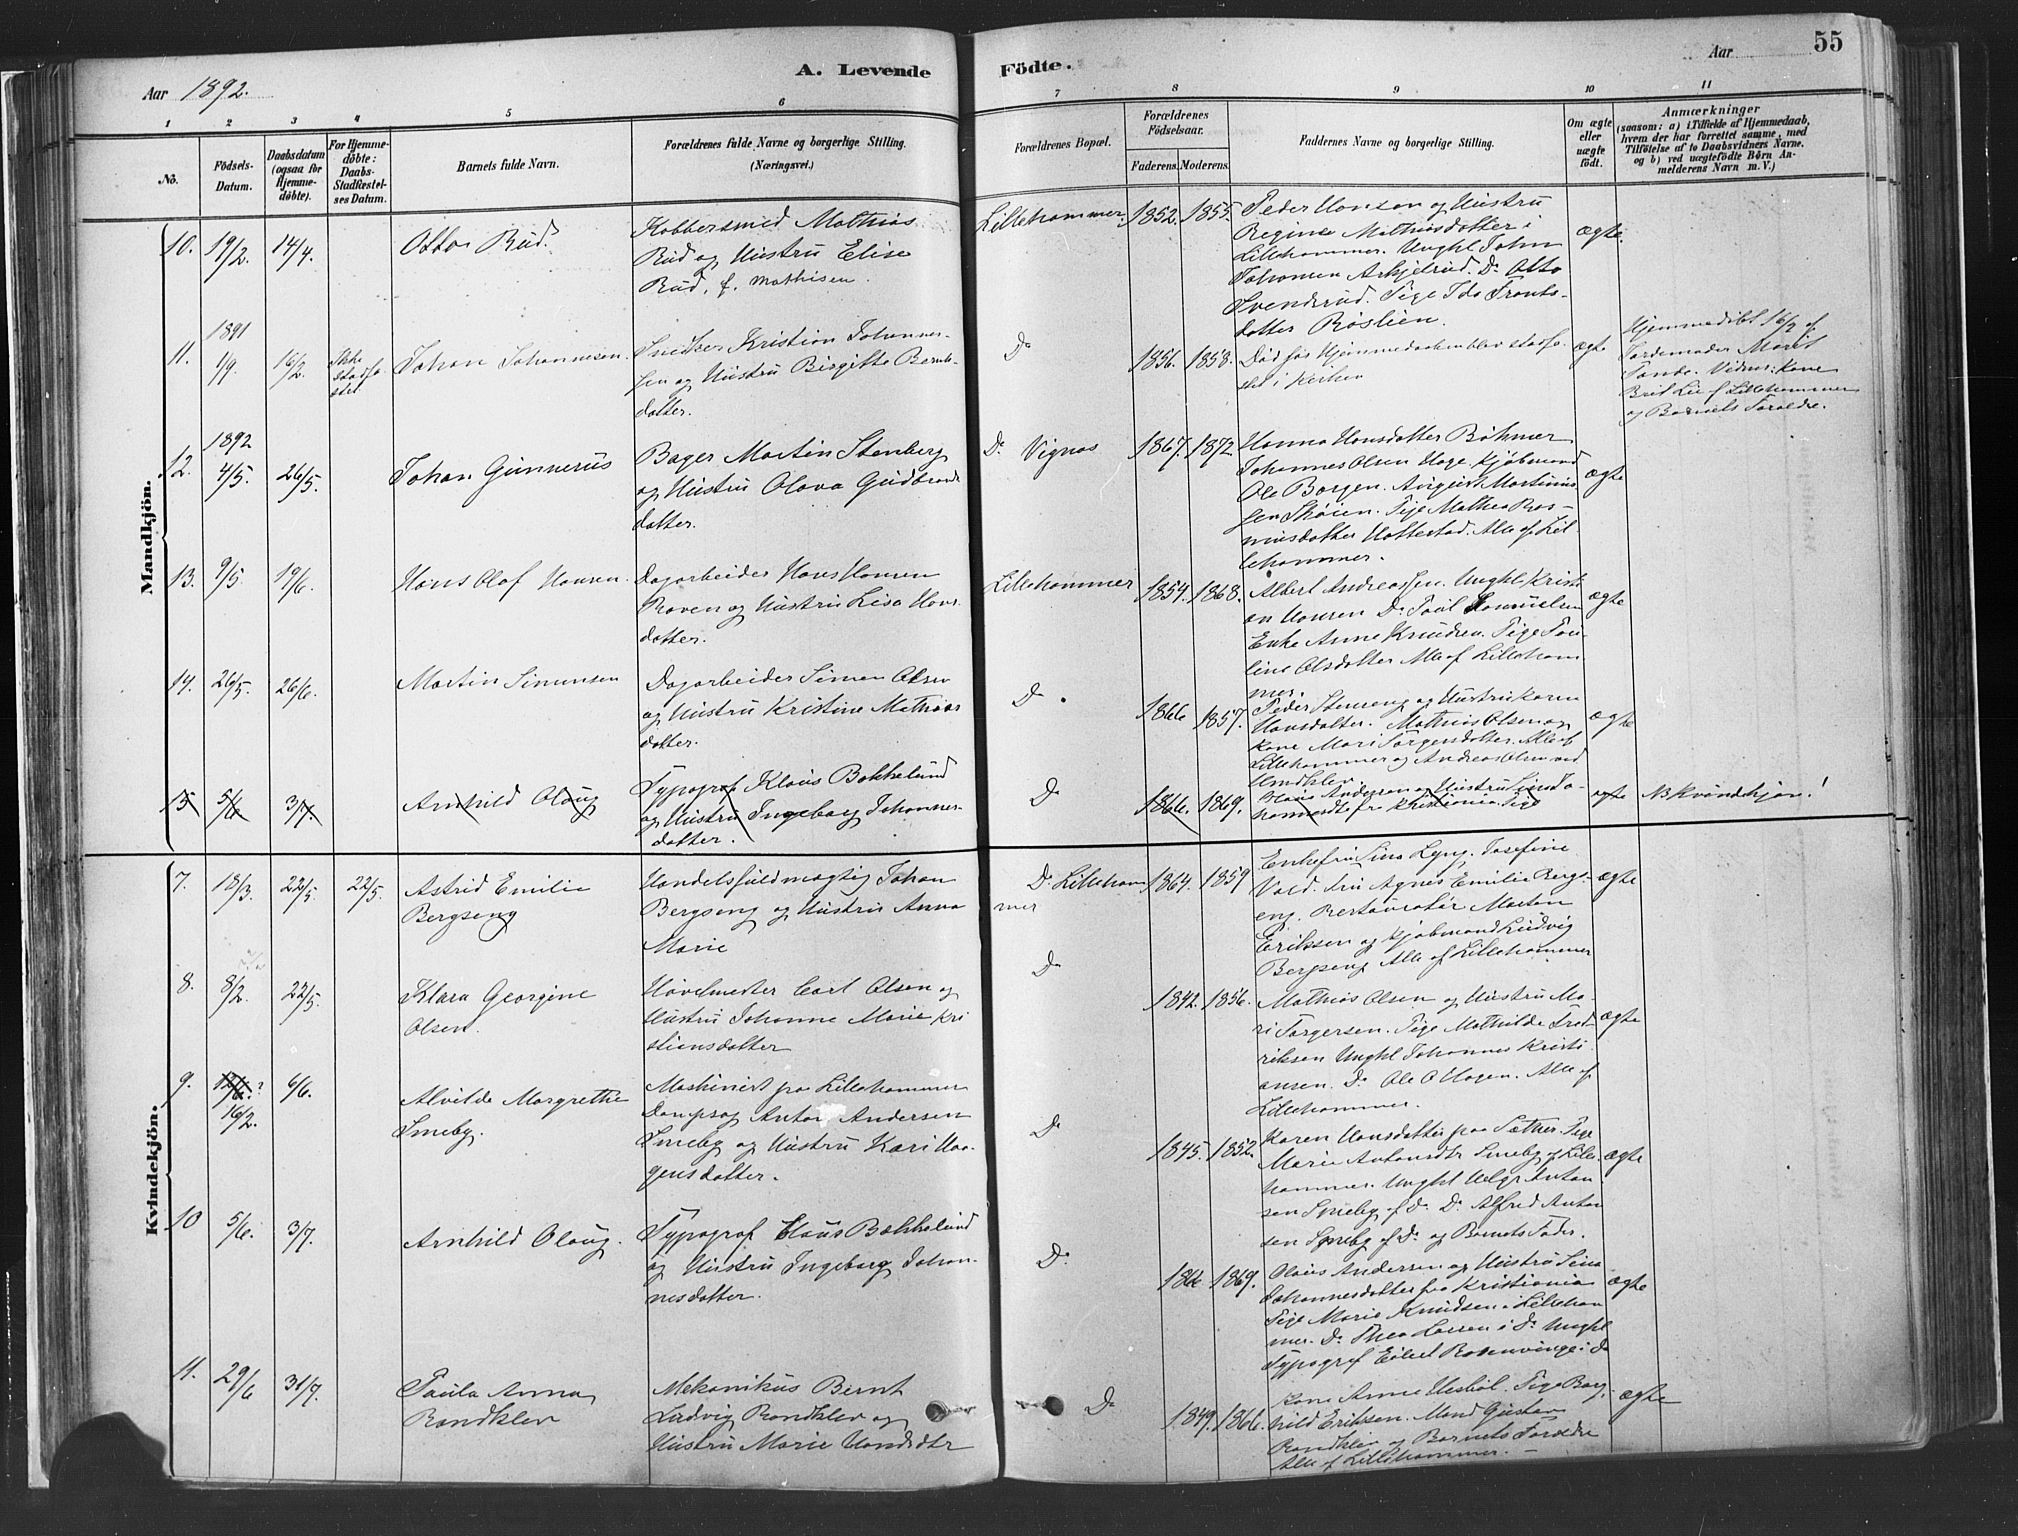 Aar 1892.
A. Levende
Födte.
Aar
55
1 2 3 4 5 6 7 8 9 10 11
No.
Födsels-
Datum.
Daabsdatum
(ogsaa for
Hjemme-
døbte).
For Hjemme-
döbte:
Daabs-
Stadfæstel-
ses Datum.
Barnets fulde Navn.
Forældrenes fulde Navne og borgerlige Stilling.
(Næringsvei.)
Forældrenes Bopæl.
Forældrenes
Födselsaar.
Faderens.
Moderens.
Faddernes Navne og borgerlige Stilling.
Om ægte
eller
uægte
födt.
Anmærkninger
(saasom: a) i Tilfælde af Hjemmedaab,
hvem der har forrettet samme, med
Tilföielse af to Daabsvidners Navne,
og b) ved uægtefödte Börn An-
melderens Navn m. V.)
Mandkjön.
10. 19/2. 14/4. Otto Rud.
Kobbersmed Mathias
Rud og Hustru Elise
Rud, f. Mathisen.
Lillehammer. 1852. 1855.
Peder Hansen og Hustru
Regine Mathiasdatter i
Lillehammer. Unghl Johan
Johansen Do Otto
Svendsrud. Pige Ida
datter Røslien.
ægte.
1891
11. 9/9. 16/2. Ikke
stadfæ-
stet
Johan Johannesen.
Snedker Kristian Johannes-
sen og Hustru Birgitte Bernts-
datter.
Do
1856. 1858.
Død før Hjemmedaaben blev stadfæ-
stet i Kirken
ægte
Hjemmedøbt 16/2 af
Jordemoder Marit
Sande. Vidner: Kone
Brit Lie af Lillehammer
og Barnets Forældre.
1892
12. 4/5. 26/5. Johan Gunnerus
Bager Martin Stenberg
og Hustru Olava Gudbrands
datter.
Do Vignas 1867. 1872.
Hanna Hansdatter Bøhmer
Johannes Olsen Hage, Kjøbmand
Ole Borgen. August Martinius
sen Skøien. Pige Mathea Ras-
musdatter Hattestad. Alle af Lil
lehammer.
ægte
13. 9/5. 19/6. Hans Olaf Hansen.
Dagarbeider Hans Hansen
Raven og Hustru Lisa Hans
datter.
Lillehammer 1854. 1868.
Albert Andreassen. Unghl Kristi
an Hansen Do Paul Samuelsen
Enke Anne Knudsen. Pige Pau
line Olsdatter Alle af Lilleham
mer.
ægte
14. 26/5. 26/6. Martin Simensen
Dagarbeider Simen Olsen
og Hustru Kristine Mathias
datter.
Do. 1866 1857.
Peder Stenseng og Hustru Karen
Hansdatter. Mathias Olsen og
Kone Mari Torgersdatter. Alle af
Lillehammer og Andreas Olsen ved
ægte
15 5/6 3/7. Arnhild Olaug
Typograf Klaus Bakkelund
og Hustru Ingeborg Johannes-
datter.
Do 1866. 1869.
Olaus Andersen og Hustru Sina Jo-
hannesdt fra Kristiania. Pige
ægte
NB Kvindekjøn!
Kvindekjön.
7. 18/3. 22/5. 22/5. Astrid Emilie
Bergseng
Handelsfuldmægtig Johan
Bergseng og Hustru Anna
Marie
Do Lilleham
mer
1864. 1859
Enkefru Sina Lyng. Josefine
Vold. Fru Agnes Emilie Bergs-
eng. Restauratør Morten
Eriksen og Kjøbmand Ludvig
Bergseng Alle af Lillehammer
ægte
8. 8/2. 22/5. Klara Georgine
Olsen.
Høvelmester Carl Olsen og
Hustru Johanne Marie Kri
stiansdatter
Do 1842. 1856.
Mathias Olsen og Hustru Ma-
ri Torgersen. Pige Mathilde Fred
riksen Unghl Johannes Kristi
ansen. Do Ole O Hagen. Alle af
Lillehammer.
ægte
9. 16/2. 6/6. Alvilde Margrethe
Smeby.
Maskinist paa Lillehammer
Dampsag Anton Andersen
Smeby og Hustru Kari Haa-
gensdatter.
Do 1845. 1852.
Karen Hansdatter paa Sæther. Pige
Marie Antonsdtr Smeby af Lille-
hammer. Unghl Helge Anton
sen Smeby af Do. Do Alfred Anton
sen Smeby af Do og Barnets Fader.
ægte
10 5/6. 3/7. Arnhild Olaug.
Typograf Claus Bakkelund
og Hustru Ingeborg Johan-
nesdatter.
Do. 1866 1869.
Olaus Andersen og Hustru Sina
Johannesdatter fra Kristiania
Pige Marie Knudsen i Lilleham
mer. Do Thea Larsen i Do Unghl
Typograf Eilert Rosenvinge i Do
ægte
11. 29/6 31/7. Paula Anna
Randklev
Mekanikus Bernt
Ludvig Randklev og
Hustru Marie Hansdtr
Do 1849. 1866.
Kone Anne Pige Borg-
hild Eriksen. Mand Gustav
Randklev og Barnets Forældre
Alle af Lillehammer.
ægte